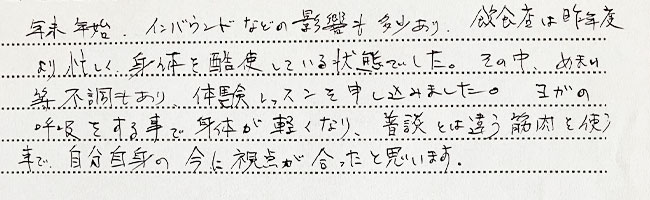 年末年始、インバウンドなどの影響も多少あり、飲食店は昨年度
より忙しく、身体を酷使している状態でした。その中、めまい
等不調もあり、体験レッスンを申し込みました。ヨガの
呼吸をする事で身体が軽くなり、普談とは違う筋肉を使う
事で、自分自身の今に視点が合ったと思います。